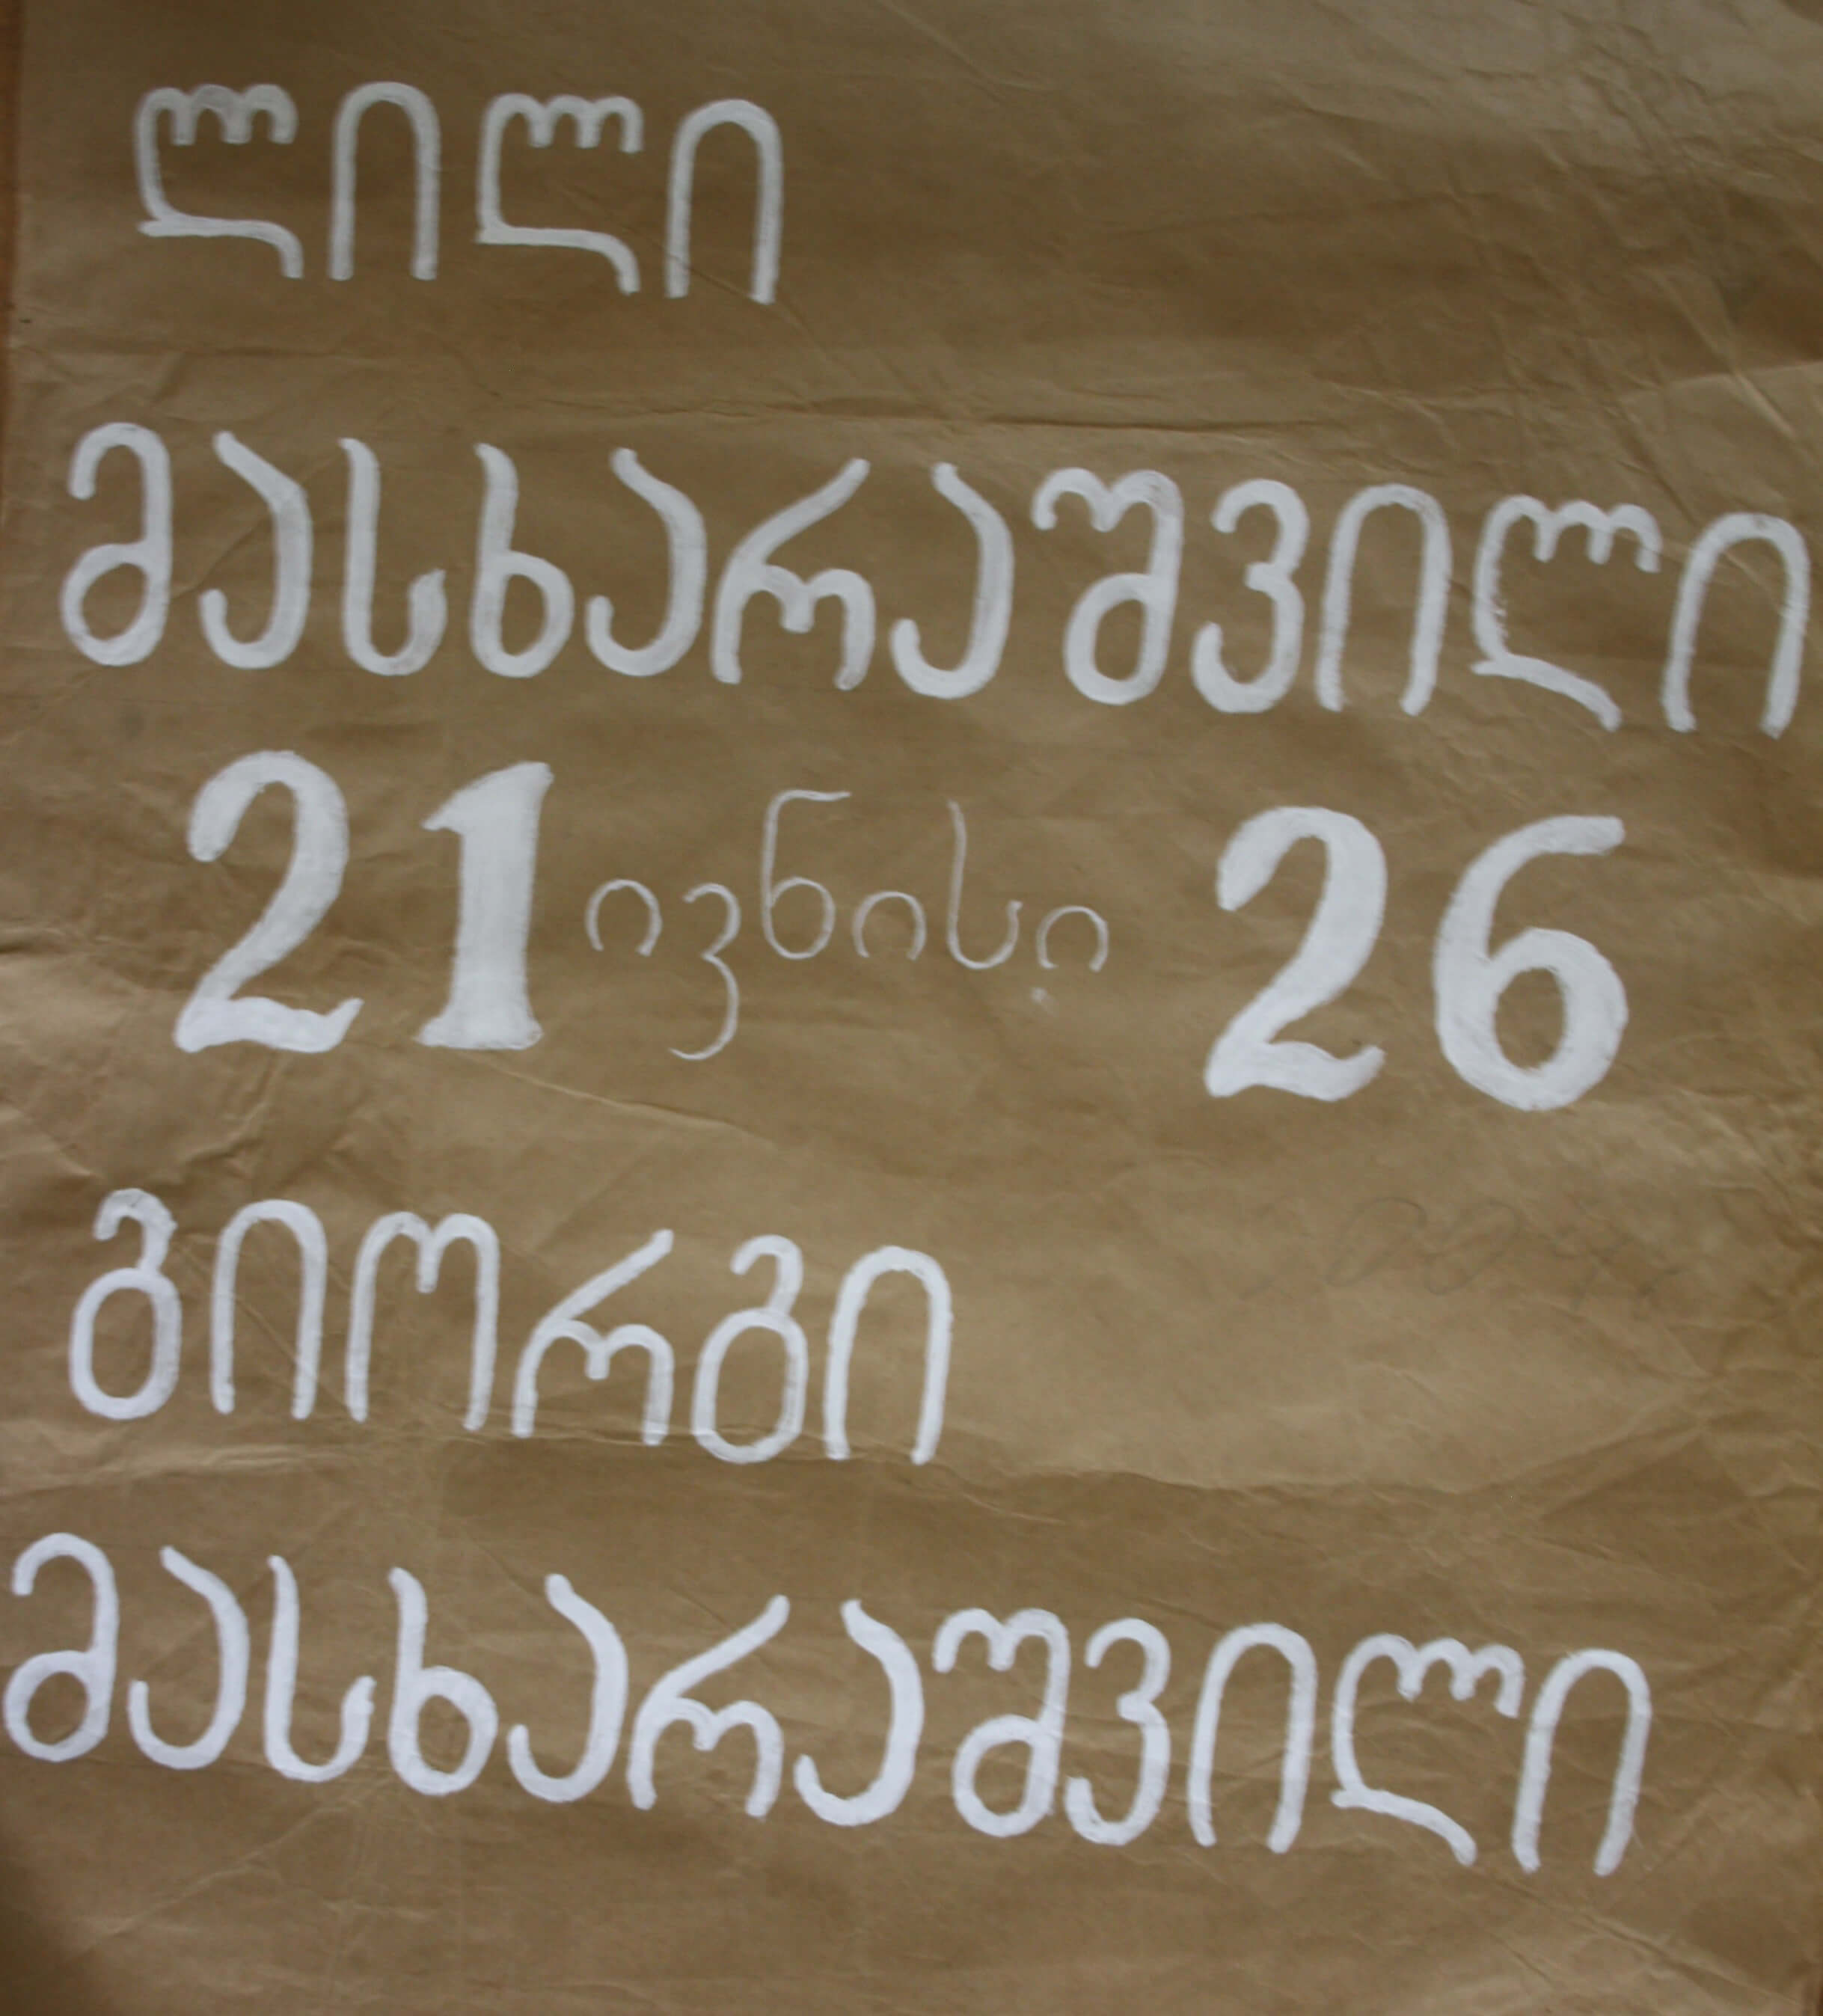 ლილი
მასხარაშვილი
21 ივნისი 26
გიორგი
მასხარაშვილი